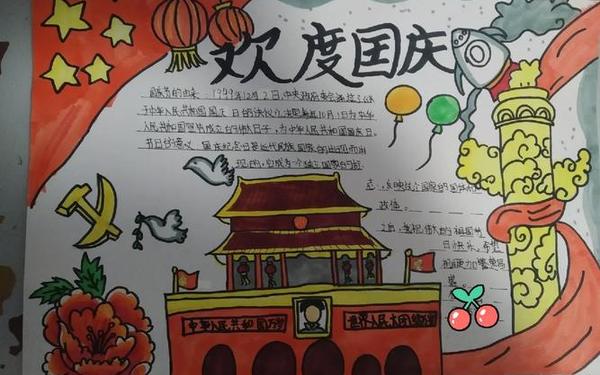 欢度国庆
国庆节的由来 1999年12月2日,中央政府委会通过了《关
于中华人民共和国国庆日的决议》,决定每年10月1日为中华
人民共和国宣告成立的伟大日子,为中华人民共和国国庆日。
节日的意义 国庆纪念日是近代民族国家的出现而出
现的,
志,反映这个国家的国体和
政体。
之日,
日快乐,希望
祖国更加繁荣昌
盛
中华人民共和国万岁
世界人民大团结万岁